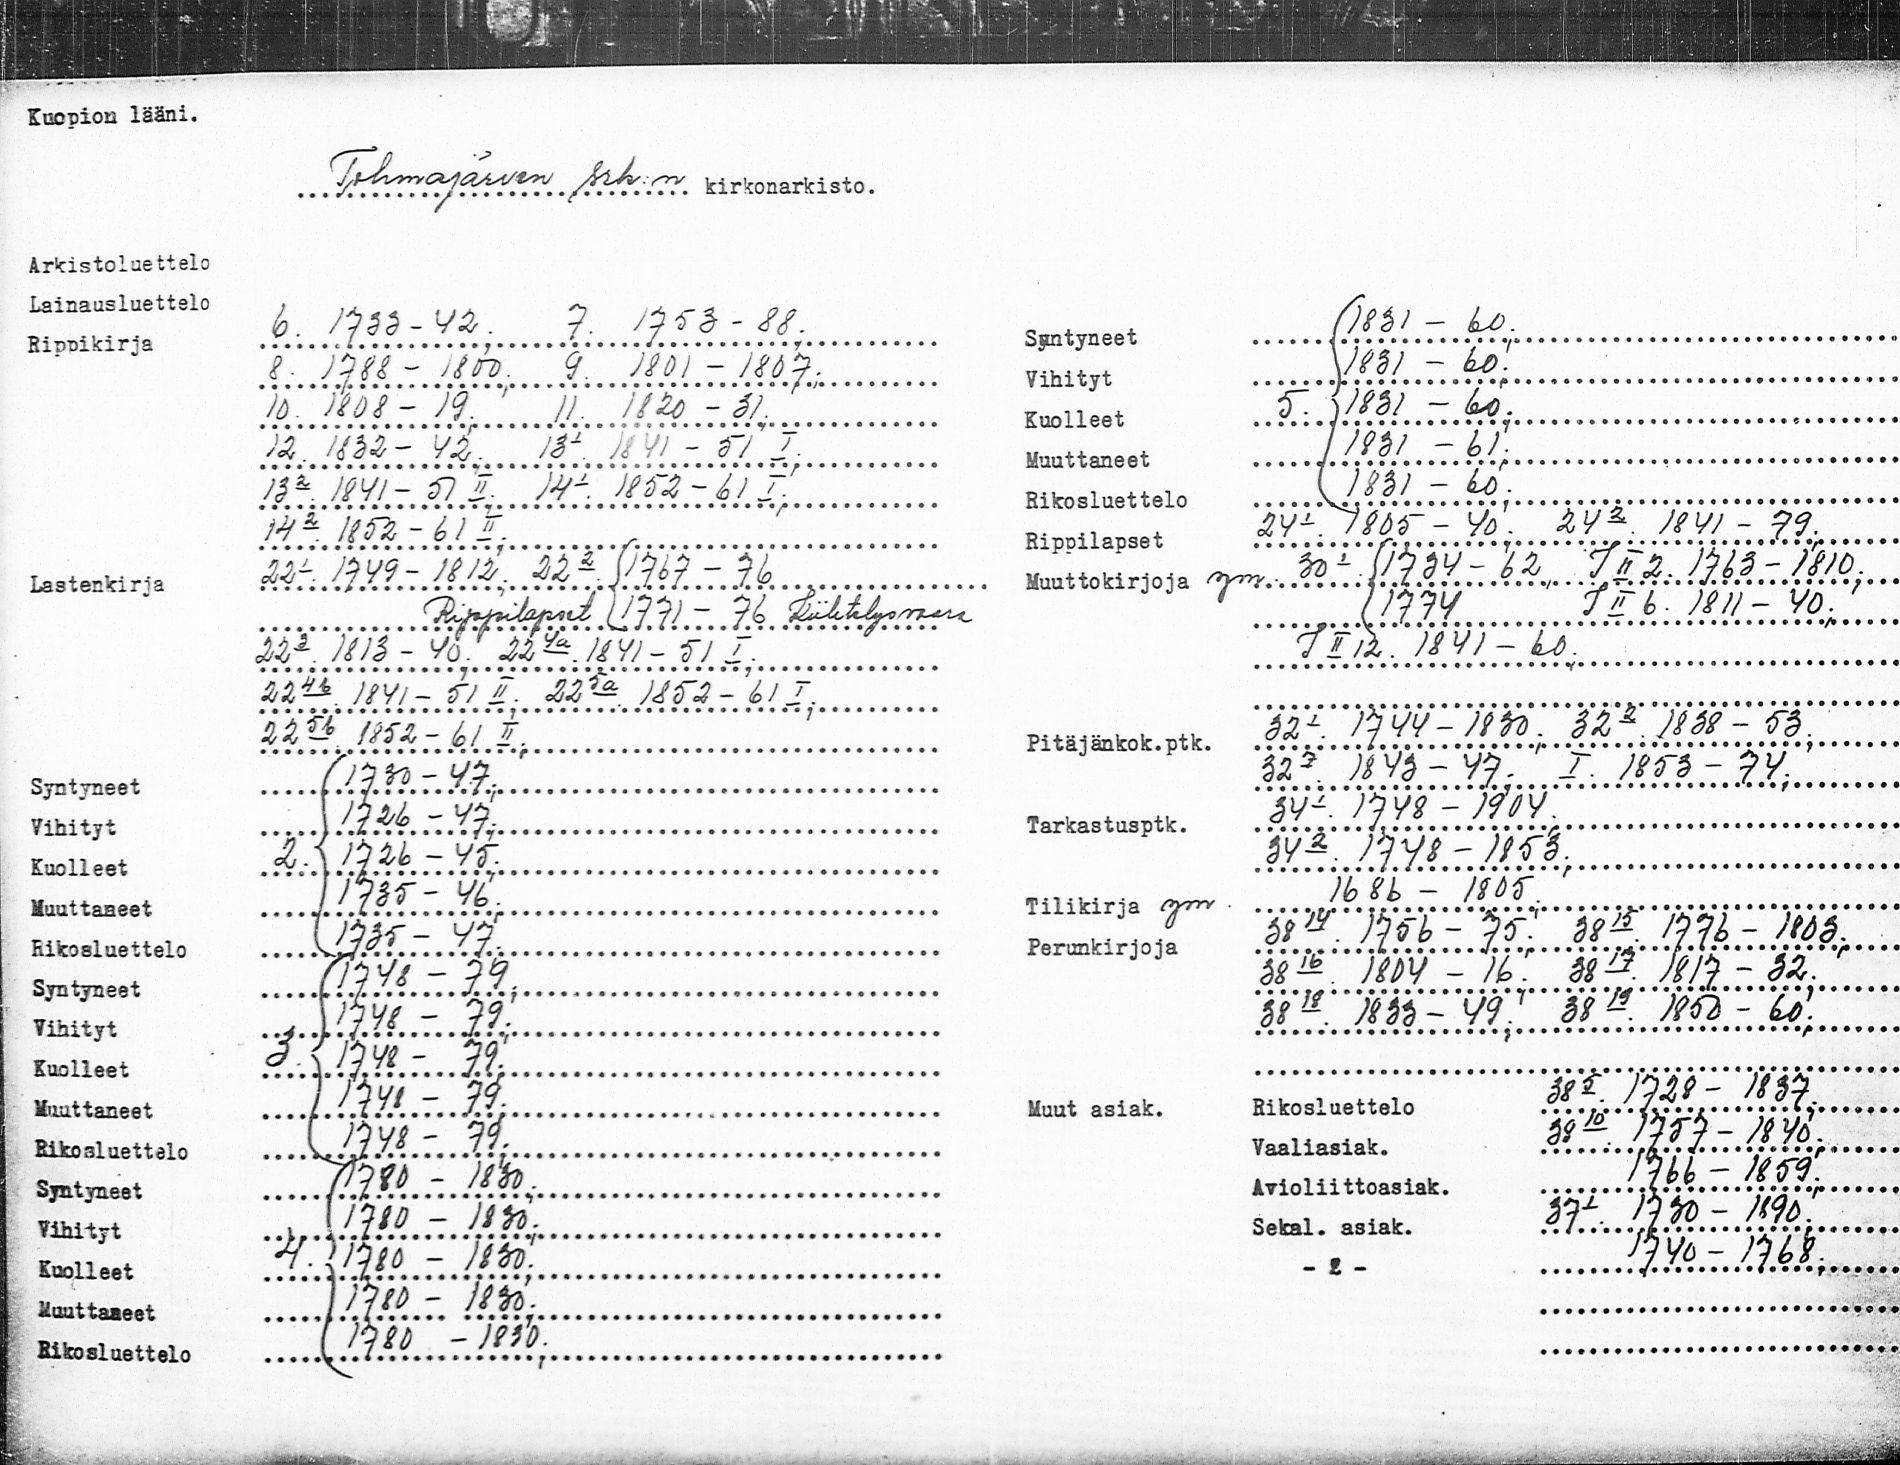 Kuopion lääni.
Tohmajärven srk:n kirkonarkisto.
Arkistoluettelo
Lainausluettelo
Rippikirja 6. 1733-42. 7. 1753-88.
8. 1788-1800. 9. 1801-1807.
10. 1808-19. 11. 1820-31.
12. 1832-42. 13¹. 1841-51 I.
13². 1841-51 II. 14¹. 1852-61 I.
14². 1852-61 II.
Lastenkirja 22¹. 1749-1812. 22². 1767-76
Rippilapset 1771-76 Kiihtelysvaara
22³. 1813-40. 22⁴ᵃ. 1841-51 I.
22⁴ᵇ. 1841-51 II. 22⁵ᵃ. 1852-61 I.
22⁵ᵇ. 1852-61 II.
Syntyneet 1730-47.
Vihityt 1726-47.
Kuolleet 2. 1726-45.
Muuttaneet 1735-46.
Rikosluettelo 1735-47.
Syntyneet 1748-79.
Vihityt 1748-79.
Kuolleet 3. 1748-79.
Muuttaneet 1748-79.
Rikosluettelo 1748-79.
Syntyneet 1780-1830.
Vihityt 1780-1830.
Kuolleet 4. 1780-1830.
Muuttaneet 1780-1830.
Rikosluettelo 1780-1830.
Syntyneet 1831-60.
Vihityt 1831-60.
Kuolleet 5. 1831-60.
Muuttaneet 1831-61.
Rikosluettelo 1831-60.
Rippilapset 24¹. 1805-40. 24². 1841-79.
Muuttokirjoja ym. 30¹. 1734-62 I II 2. 1763-1810.
1774 I II 6. 1811-40.
I II 12. 1841-60.
Pitäjänkok.ptk. 32¹. 1744-1830. 32². 1838-53.
32⁷. 1843-47. I. 1853-74.
Tarkastusptk. 34¹. 1748-1904.
34². 1748-1853.
Tilikirja ym. 1686-1805.
Perunkirjoja 38¹⁴. 1756-75. 38¹⁵. 1776-1803.
38¹⁶. 1804-16. 38¹⁷. 1817-32.
38¹⁸. 1833-49. 38¹⁹. 1850-60.
Muut asiak. Rikosluettelo 38⁵. 1728-1837.
Vaaliasiak. 38¹⁰. 1757-1840.
Avioliittoasiak. 1766-1859.
Sekal. asiak. 37¹. 1730-1890.
- 2 - 1740-1768.